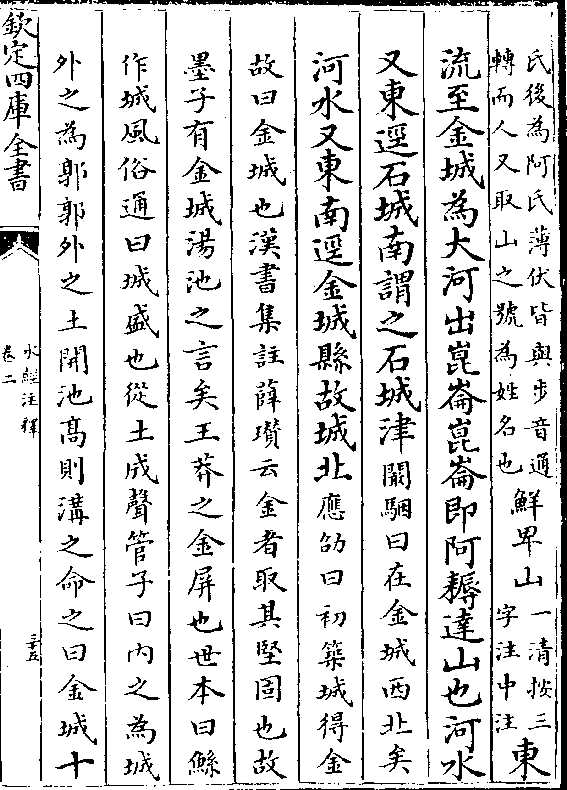 氏後為阿氏薄伏皆與步音通
轉而人又取山之號為姓名也
鮮卑山
一清按三
字注中注
東
流至金城為大河出崑崙崑崙即阿耨達山也河水
又東逕石城南謂之石城津闞駰曰在金城西北矣
河水又東南逕金城縣故城北應劭曰初築城得金
故曰金城也漢書集註薛瓚云金者取其堅固也故
墨子有金城湯池之言矣王莽之金屏也世本曰鯀
作城風俗通曰城盛也從土成聲管子曰內之為城
外之為郭郭外之土開池高則溝之命之曰金城十
欽定四庫全書
水經注釋
卷二
三十五